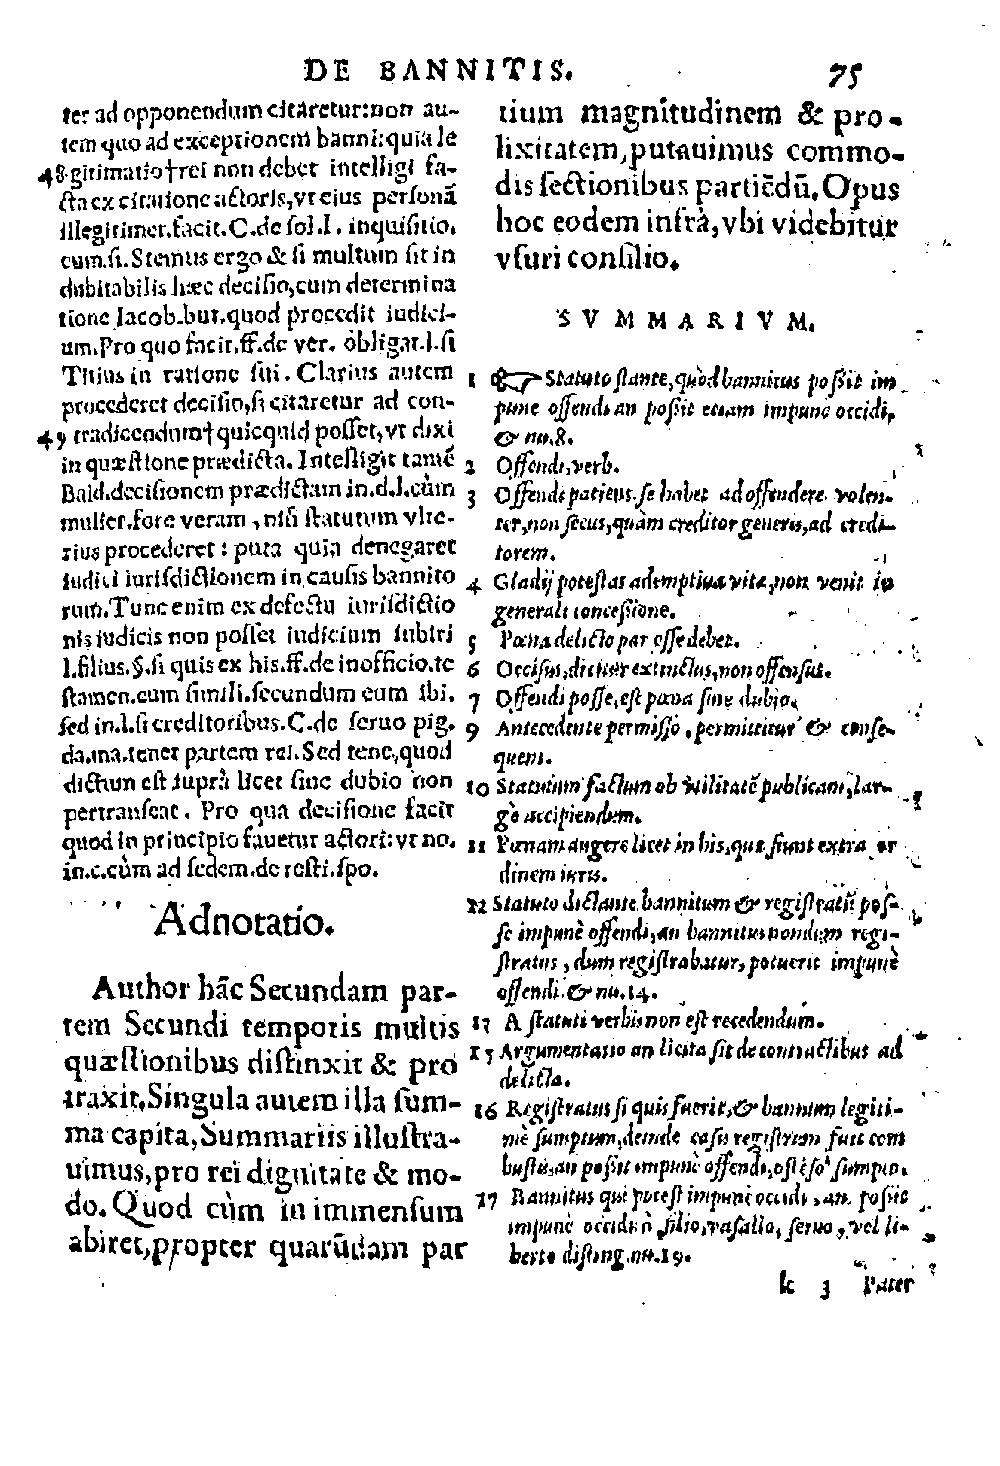 DE BANNITIS. 75
ter ad opponendum citaretur: non au-
tem quo ad exceptionem banni: quia le
48 gitimatio † rei non debet intelligi fa-
cta ex citatione actoris, vt eius personã
illegitimet. facit. C. de sol. l. inquisitio.
cum. si. Stemus ergo & si multum sit in
dubitabilis hæc decisio, cum determina
tione Iacob. but. quod procedit iudici-
um. Pro quo facit. ff. de ver. obligat. l. si
Titius in ratione sui. Clarius autem
procederet decisio, si citaretur ad con-
49 tradicendum † quicquid posset, vt dixi
in quæstione prædicta. Intelligit tamẽ
Bald. decisionem prædictam in. d. l. cùm
mulier. fore veram, nisi statutum vlte-
rius procederet: puta quia denegaret
iudici iurisdictionem in causis bannito
rum. Tunc enim ex defectu iurisdictio
nis iudicis non posset iudicium subiri
l. filius. §. si quis ex his. ff. de inofficio. te
stamen. cum simili. secundum eum ibi.
sed in. l. si creditoribus. C. de seruo pig.
da. ma. tenet partem rei. Sed tene, quod
dictum est suprà licet sine dubio non
pertranseat. Pro qua decisione facit
quod in principio fauetur actori: vt no.
in. c. cùm ad sedem. de resti. spo.
Adnotatio.
Author hãc Secundam par-
tem Secundi temporis multis
quæstionibus distinxit & pro
traxit. Singula autem illa sum-
ma capita, Summariis illustra-
uimus, pro rei dignitate & mo-
do. Quod cùm in immensum
abiret, propter quarũdam par
tium magnitudinem & pro-
lixitatem, putauimus commo-
dis sectionibus partiẽdũ. Opus
hoc eodem infrà, vbi videbitur
vsuri consilio.
SVMMARIVM.
1 ☞ Statuto stante, quòd bannitus possit im
punè offendi an possit etiam impunè occidi,
& nu. 8.
2 Offendi, verb.
3 Offendi patiens. se habet ad offendere volen-
ter, non secus, quàm creditor generis, ad credi-
torem.
4 Gladij potestas ademptiua vitæ, non venit in
generali concessione.
5 Pœna delicto par esse debet.
6 Occisus, dicitur extinctus, non offensus.
7 Offendi posse, est pœna sine dubio.
9 Antecedente permisso, permittitur & conse-
quens.
10 Statutum factum ob vtilitatẽ publicam, lar-
gè accipiendum.
11 Pœnam augere licet in his, quæ fiunt extra or
dinem iuris.
12 Statuto dictante bannitum & registratũ pos-
se impunè offendi, an bannitus nondum regi-
stratus, dum registrabatur, potuerit impunè
offendi. & nu. 14.
13 A statuti verbis non est recedendum.
15 Argumentatio an licita sit de contractibus ad
delicta.
16 Registratus si quis fuerit, & bannum legiti-
mè sumptum, deinde casu registrum fuit com
bustũ, an possit impunè offendi, ostẽso sumpto.
17 Bannitus qui potest impunè occidi, an possit
impunè occidi à filio, vasallo, seruo, vel li-
berto disting. nu. 19.
k 3 Pater